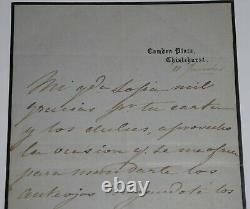 Camden Place,
Chislehurst.
Mi qda Sofia mil
gracias por tu carta
y los dulces, aprovecho
la ocasion q. se
para mandarte los
anteojos